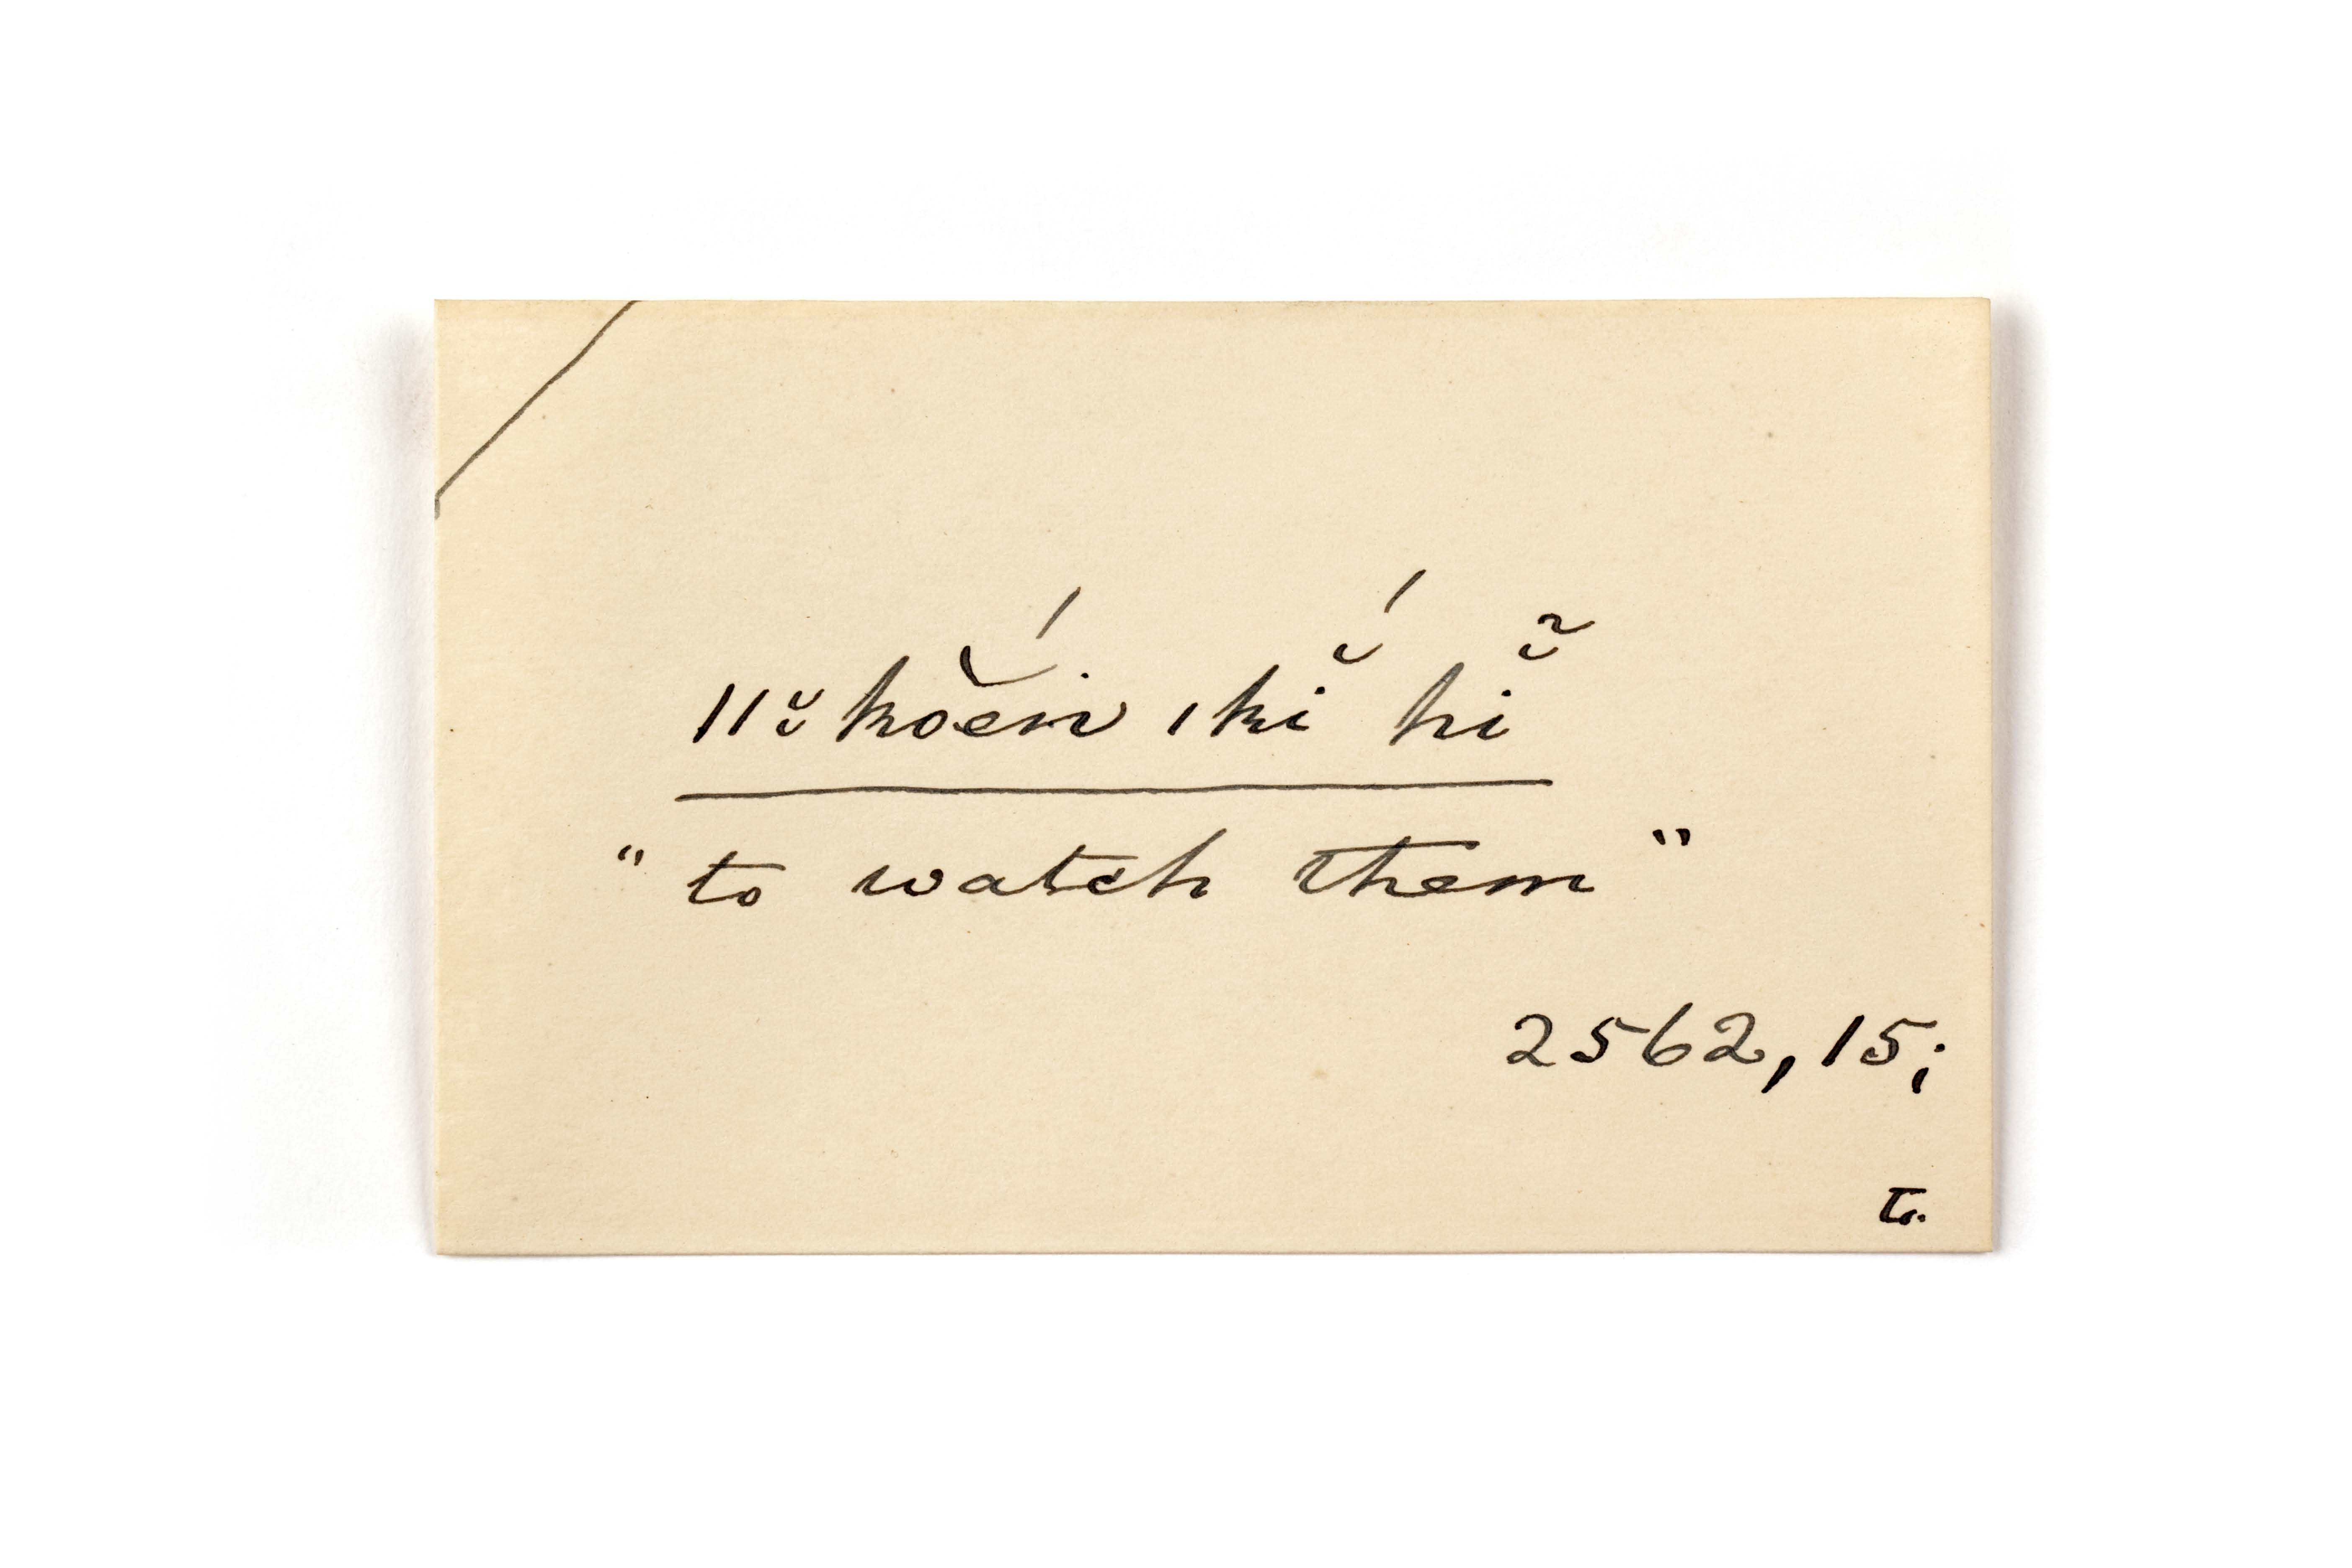 ǁ̆kŏéin ǀkĭ́ hĭ̃
"to watch them"
2562, 15;